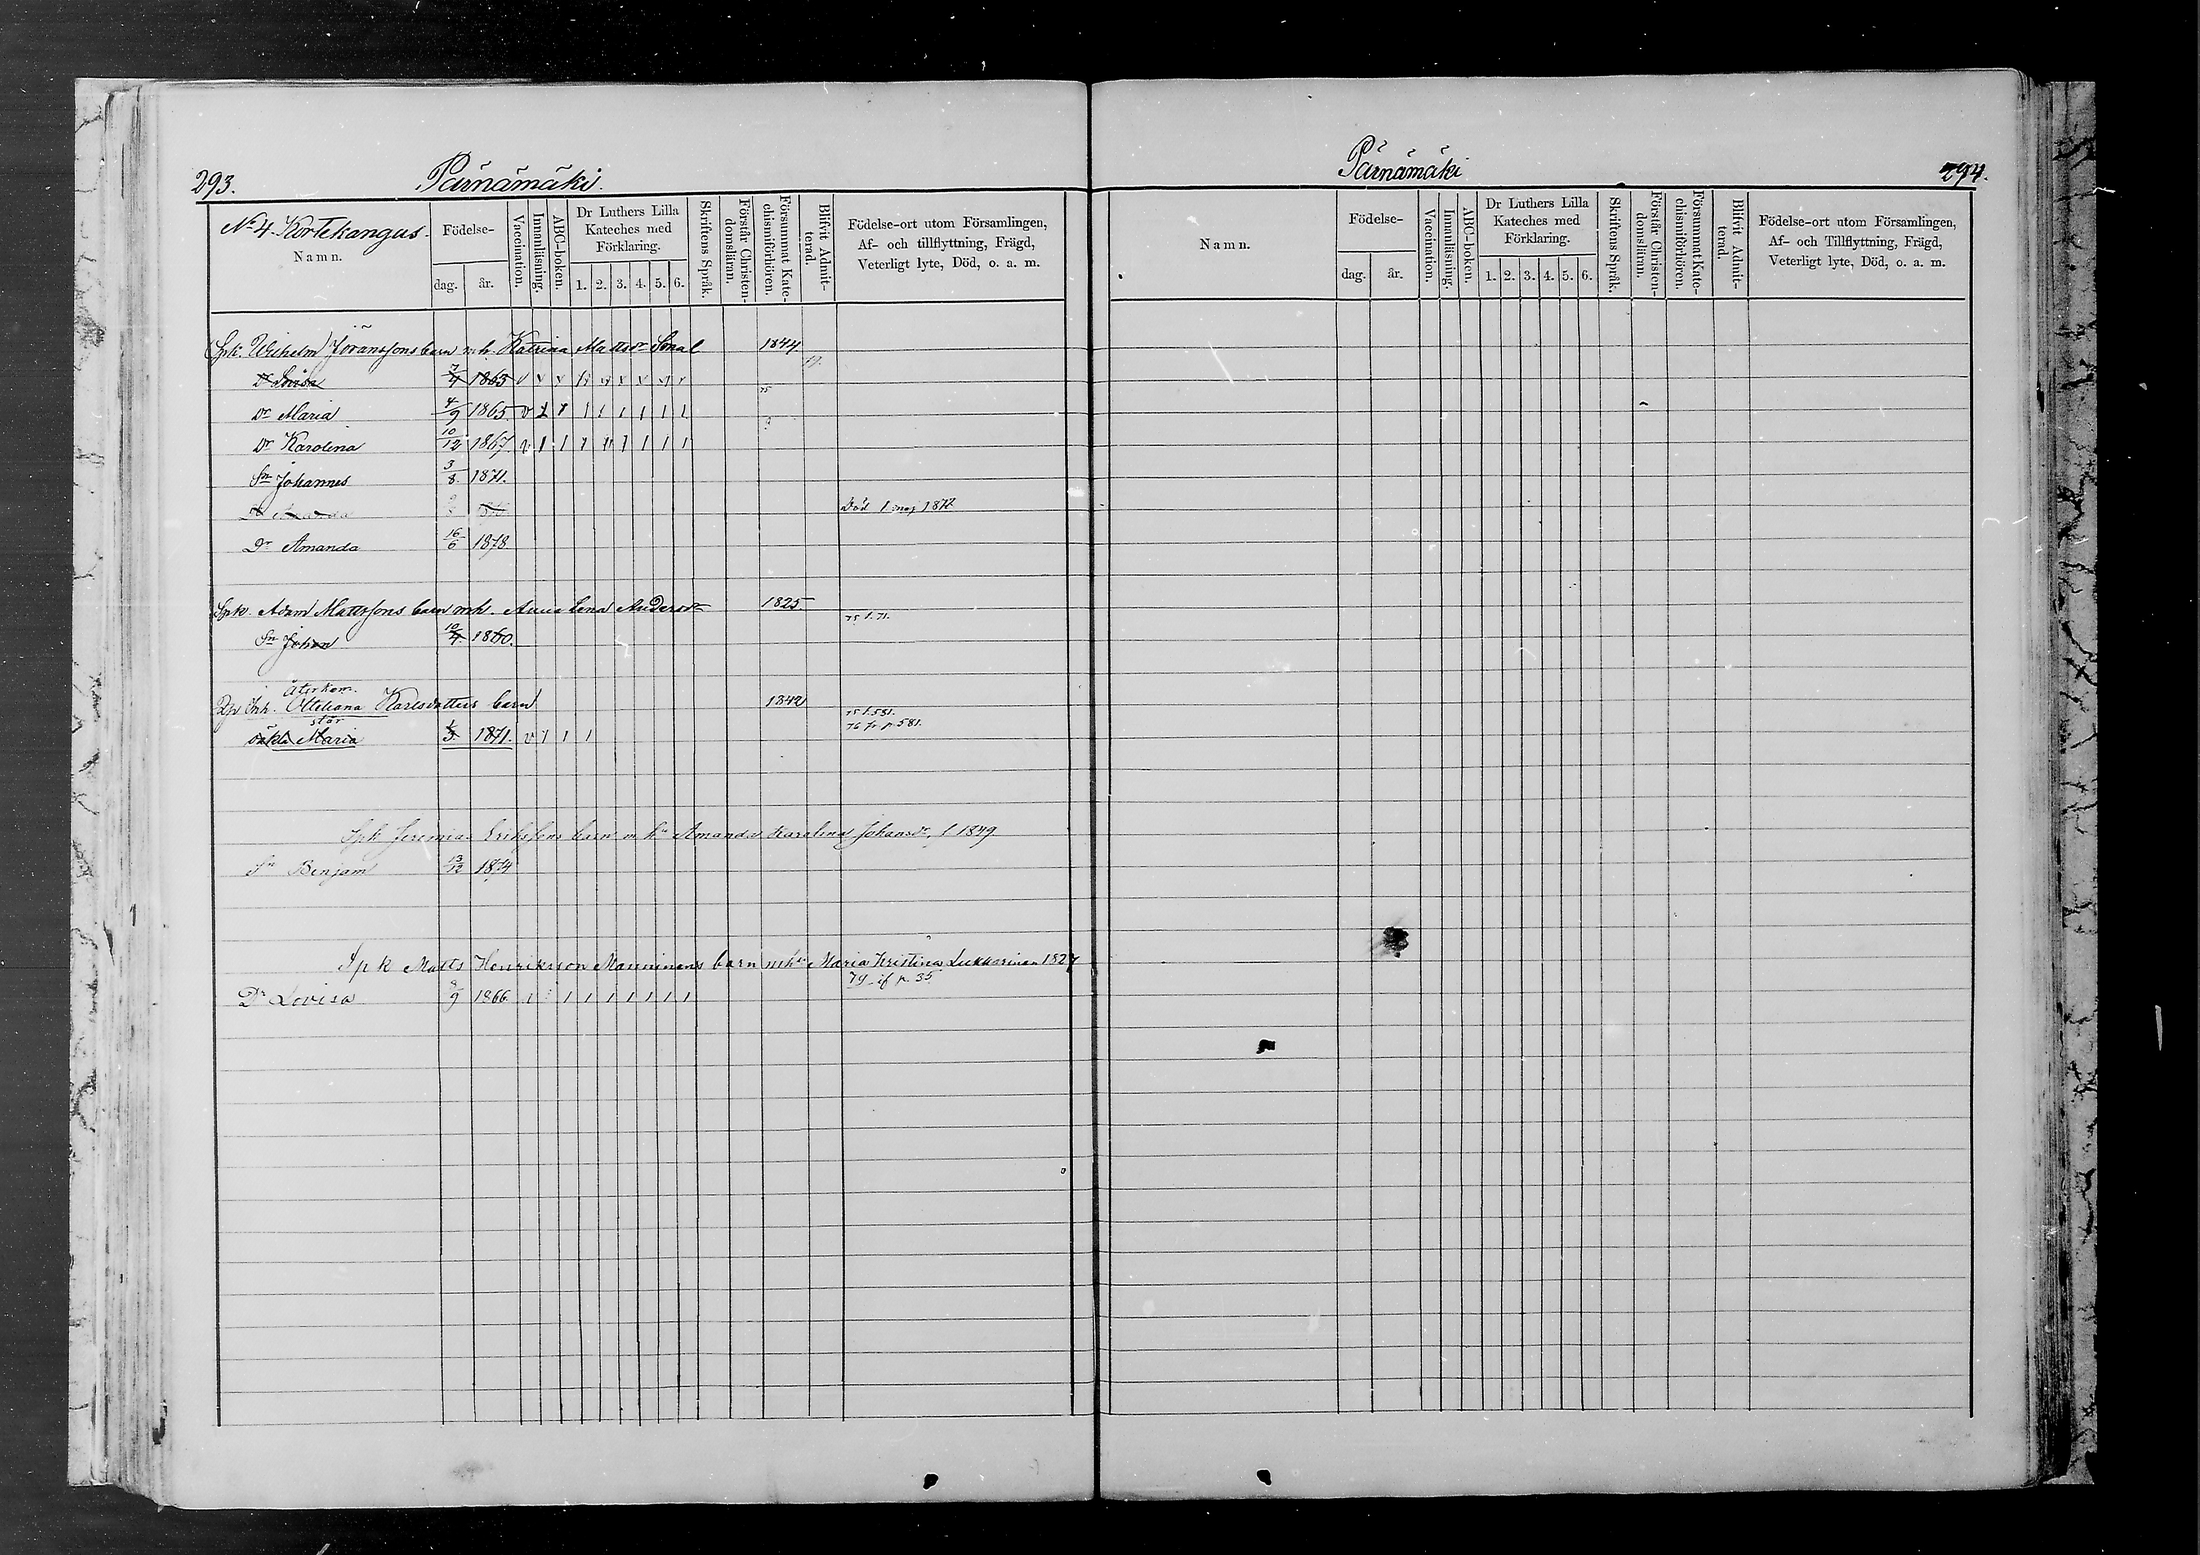 293. Pärnämäki.
No 4 Kortekangus.
Namn.
Födelse-
dag. år.
Vaccination.
Innanläsning.
ABC-boken.
Dr Luthers Lilla Kateches med Förklaring.
1. 2. 3. 4. 5. 6.
Skriftens Språk.
Förstår Christen-domsläran.
Försummat Kate-chismiförhören.
Blifvit Admit-terad.
Födelse-ort utom Församlingen,
Af- och tillflyttning, Frägd,
Veterligt lyte, Död, o. a. m.
Spk. Wilhelm Jöranssons barn m. h. Katrina Mattsdr 1844
Dr Lovisa 7/4 1863 v
Dr Maria 4/9 1865. v
Dr Karolina 10/12 1867. v
Sn Johannes 3/8. 1871.
Död 1 maj 1872
Dr Amanda 16/6 1878.
Spk. Adam Mattssons barn mh. Anna Lena Andersdr 1825
75 f. 71.
Sn Johan 10/4. 1860.
återkom.
Karlsdotters barn 1842
75 f. 581.
76 fr. p. 581.
oäkta Maria 1/3 1871. v
Spk Jeremias Erikssons barn m hu Amanda Karolina Johansdr, f. 1849
Sn Benjam 13/12 1874
Spk Matts Henriksson Manninens barn mhu Maria Kristina Lukkarinen 1827
79 if p. 35
Dr Lovisa 8/9 1866.
Pärnämäki 294.
Namn.
Födelse-
dag. år.
Vaccination.
Innanläsning.
ABC-boken.
Dr Luthers Lilla Kateches med Förklaring.
1. 2. 3. 4. 5. 6.
Skriftens Språk.
Förstår Christen-domsläran.
Försummat Kate-chismiförhören.
Blifvit Admit-terad.
Födelse-ort utom Församlingen,
Af- och Tillflyttning, Frägd,
Veterligt lyte, Död, o. a. m.